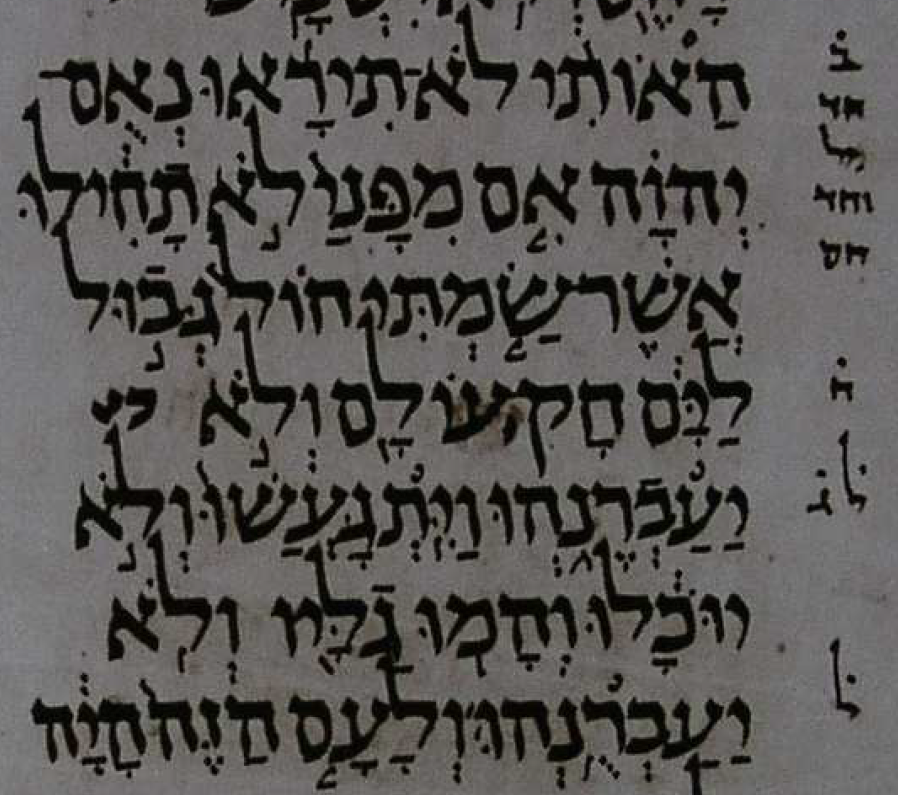 הַאוֹתִי לֹא־תִירָאוּ נְאֻם־
יְהוָה אִם מִפָּנַי לֹא תָחִילוּ
אֲשֶׁר שַׂמְתִּי חוֹל גְּבוּל
לַיָּם חָק עוֹלָם וְלֹא
יַעַבְרֶנְהוּ וַיִּתְגָּעֲשׁוּ וְלֹא
יוּכָלוּ וְהָמוּ גַלָּיו וְלֹא
יַעַבְרֻנְהוּ וְלָעָם הַזֶּה הָיָה
ב
חד
מל
וחד
חס
ה
ל ג
ל